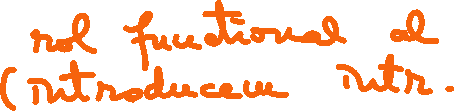 rol functional al
(introducem intr.